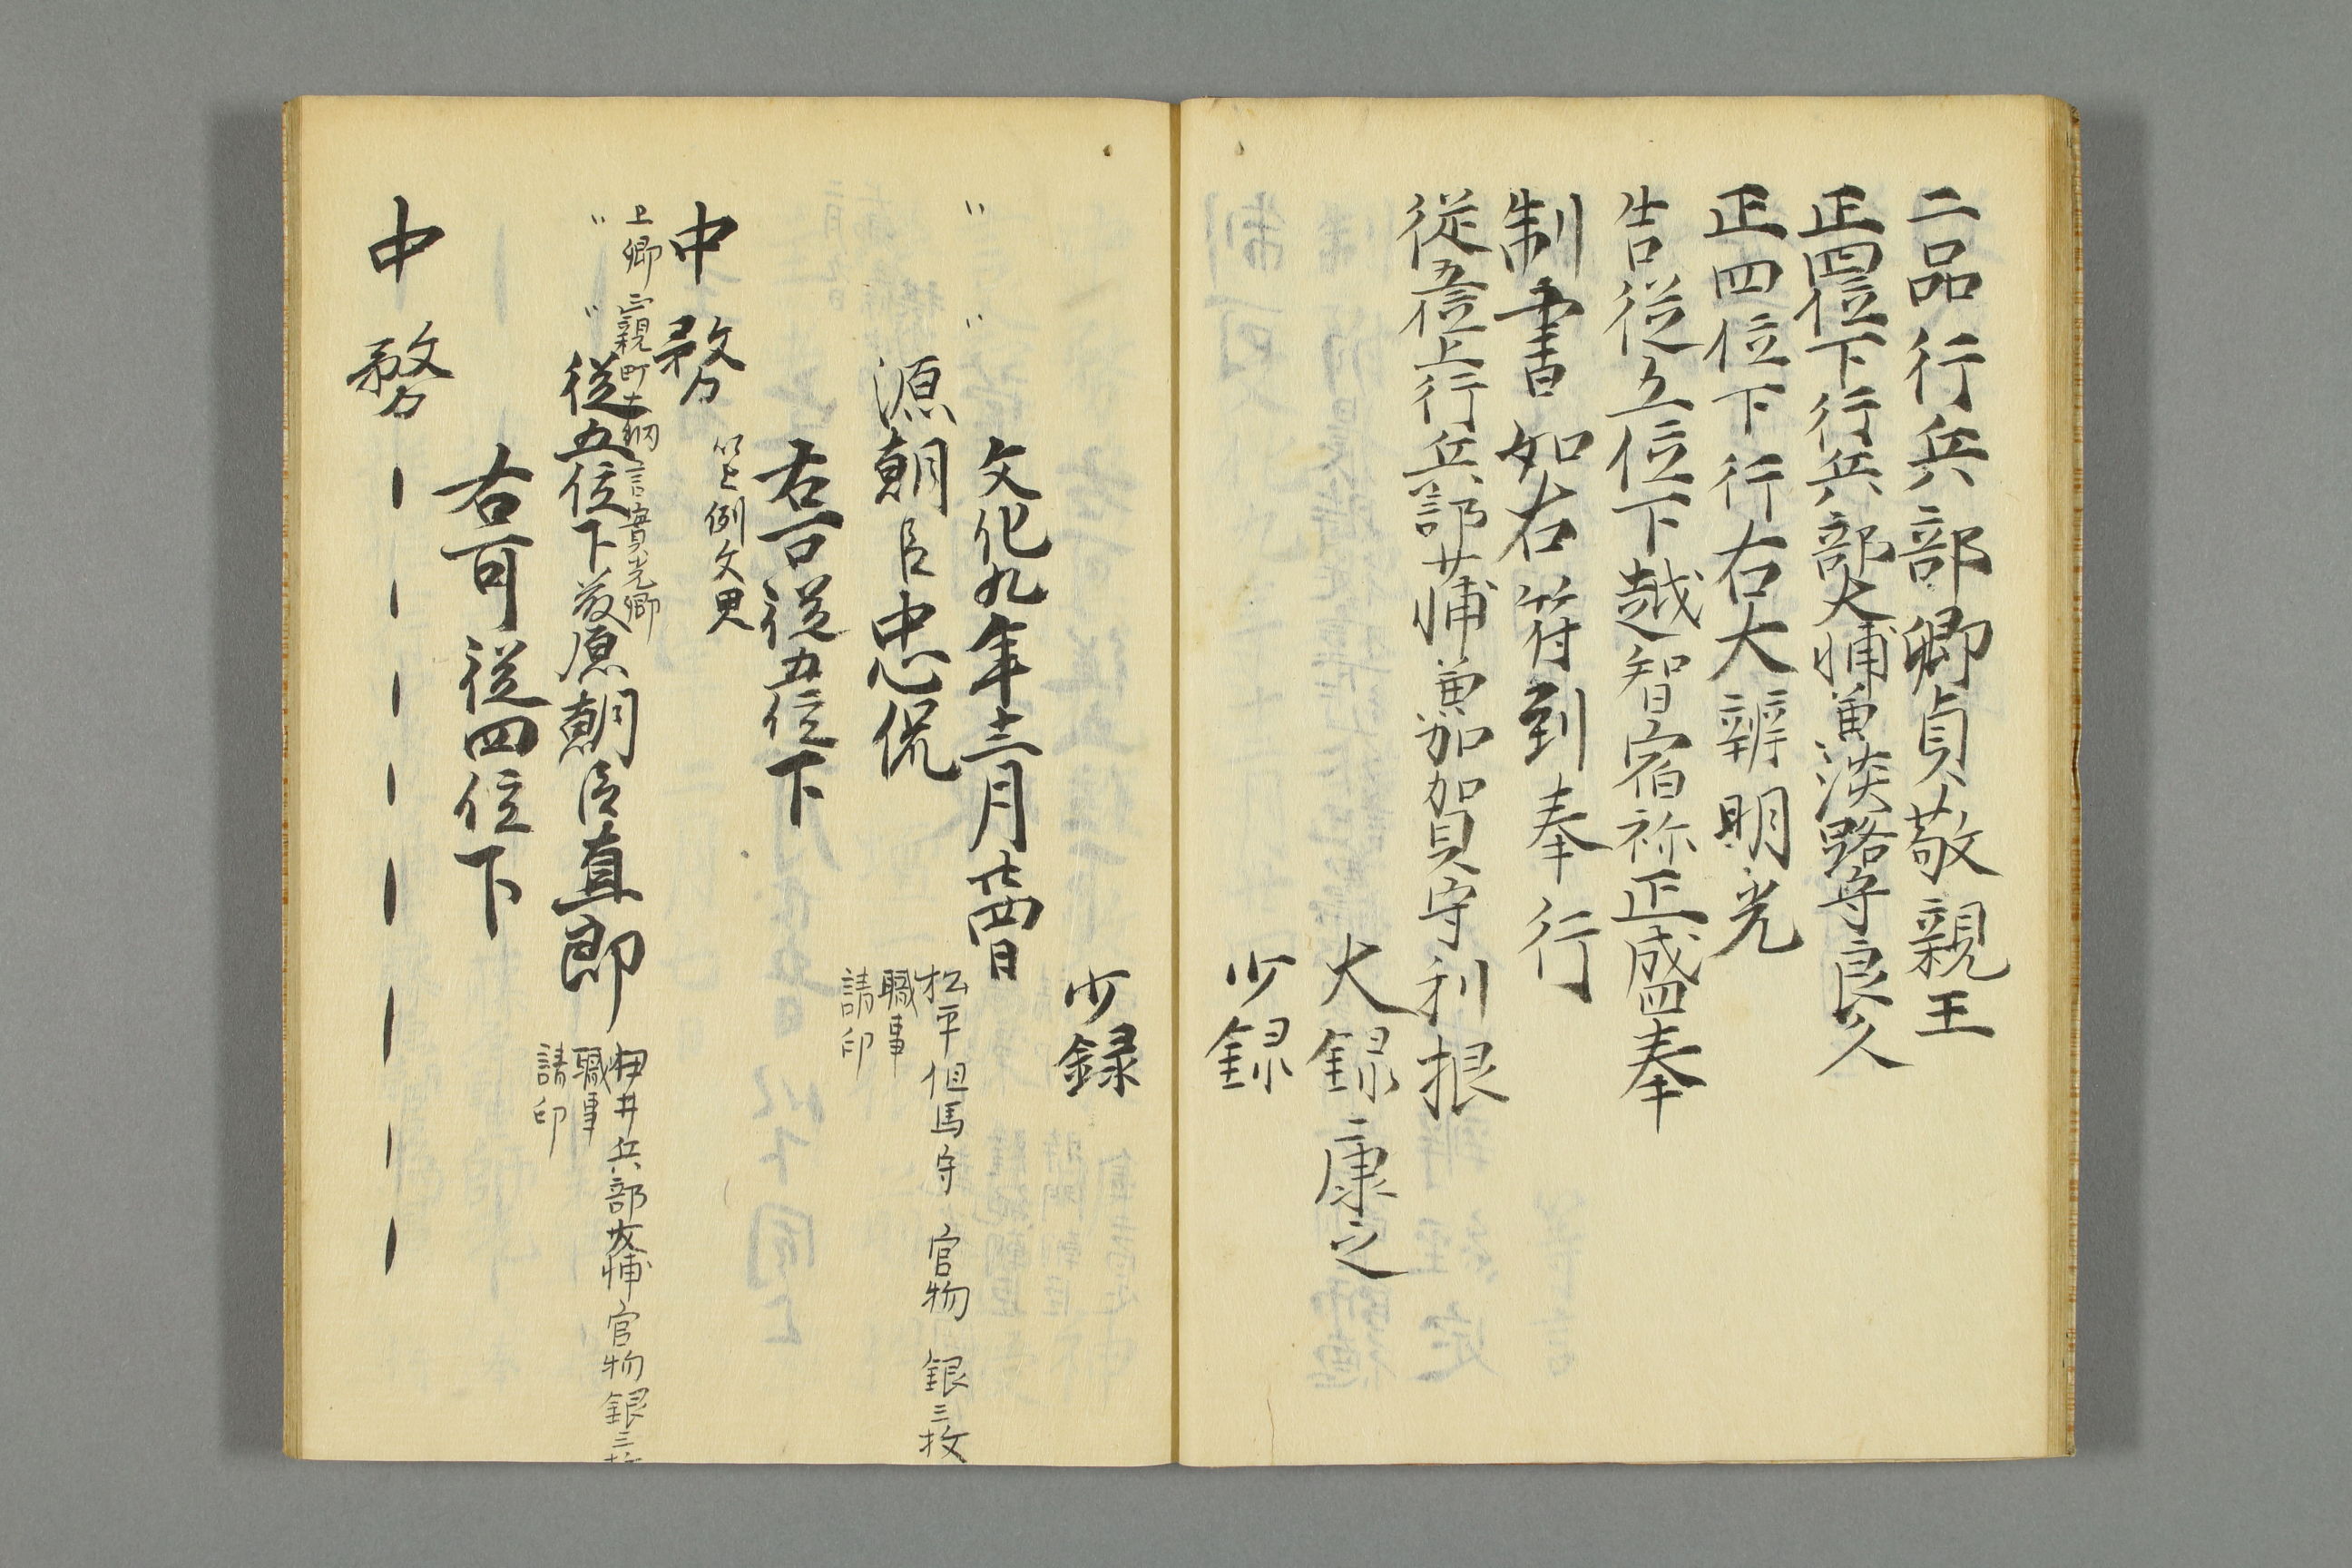 二品行兵部卿貞敬親王
正四位下行兵部大輔兼淡路守良久
正四位下行右大辨明光
告従五位下越智宿祢正盛奉
制書如右符到奉行
従五位上行兵部少輔兼加賀守利根
大録康之
少録
少録
文化九年十二月十四日
〃 〃 源朝臣忠侃
松平但馬守 官物 銀三枚
職事
請印
右可従五位下
中務
以上例文略
上卿正親町大納言實光卿
〃 〃 従五位下藤原朝臣直郎
伊井兵部少輔 官物銀三枚
職事
請印
右可従四位下
中務